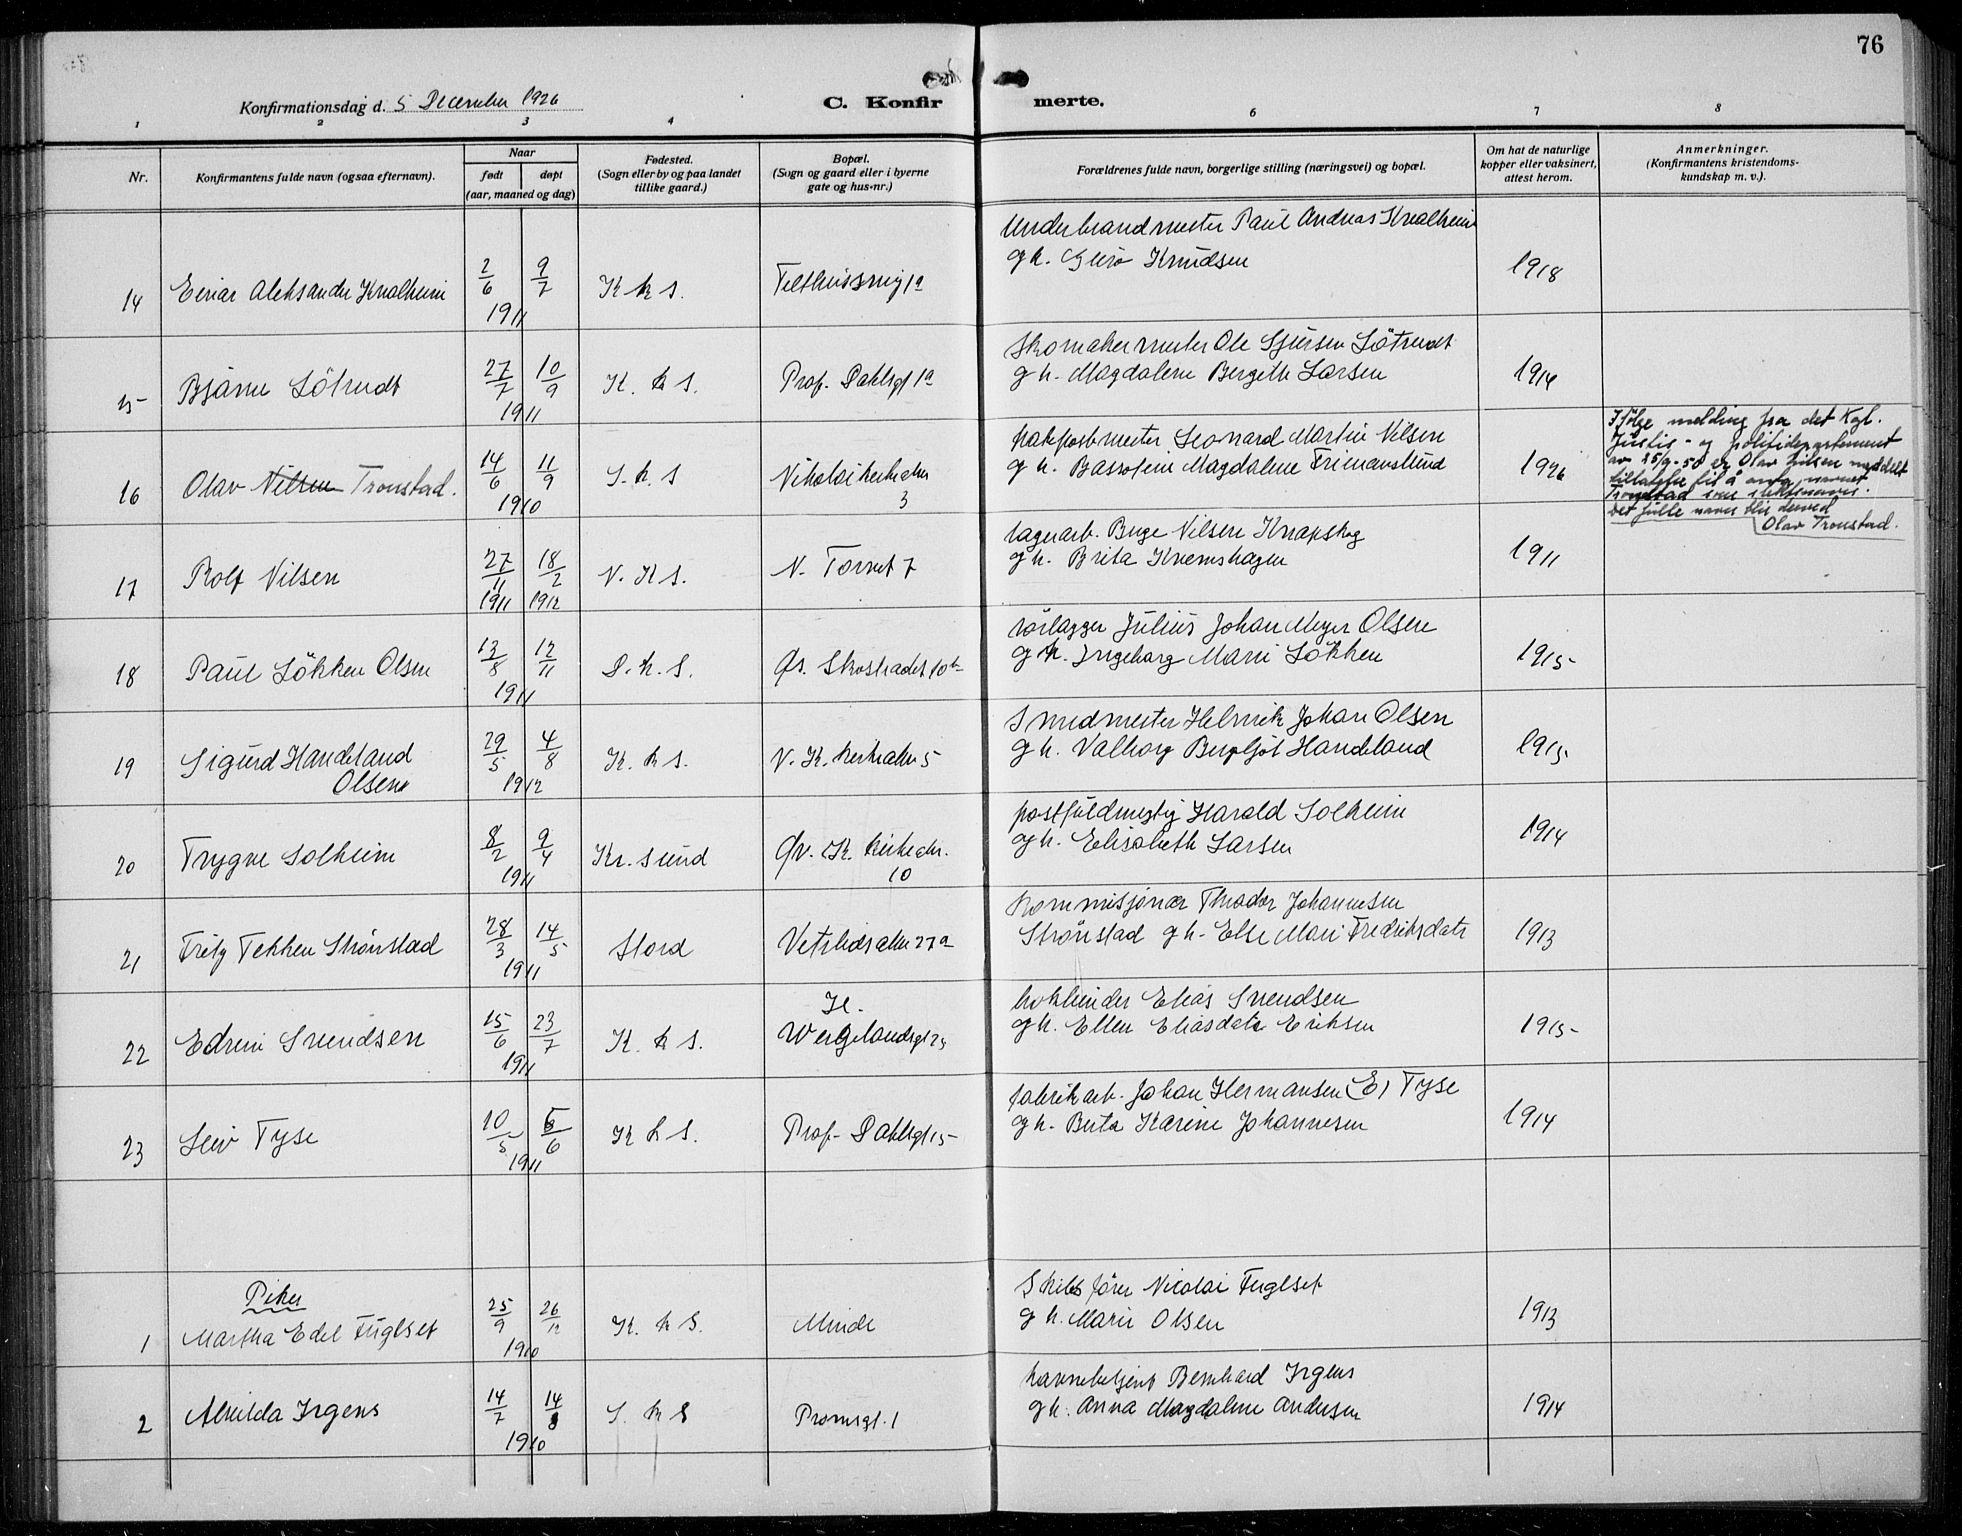 76
Konfirmationsdag d. 5 December 1926
C. Konfirmerte.
1 2 3 4 6 7 8
Nr.
Konfirmantens fulde navn (ogsaa efternavn).
Naar
født døpt
(aar, maaned og dag)
Fødested.
(Sogn eller by og paa landet
tillike gaard.)
Bopæl.
(Sogn og gaard eller i byerne
gate og hus-nr.)
Forældrenes fulde navn, borgerlige stilling (næringsvei) og bopæl.
Om hat de naturlige
kopper eller vaksinert,
attest herom.
Anmerkninger.
(Konfirmantens kristendoms-
kundskap m. v.).
Underbrandmester Paul Andreas Kvalheim
14 Einar Aleksander Kvalheim 2/6 9/7 1911 K k S. 1a g h. Guro Knudsen 1918
Skomakermester Ole Sjursen Søtvedt
15 Bjarne Søtvedt 27/7 10/9 1911 K. k S. Prof. Dahlsgt 1a g h. Magdalene Bergette Larsen 1914
Leonard Martin Nilsen
16 Olav Nilsen Tronstad. 14/6 11/9 1910 S. k. S Nikolaikirkealm 3 g h. Magdalene 1926
Ifølge melding fra det Kgl.
Justis- og politidepartement
av 25/9-50 er Olav Nilsen meddelt
tillatelse til å anta navnet
Tronstad som slektsnavn.
Det fulle navn blir derved
Olav Tronstad.
lagerarb. Nilsen Knapskog
17 Rolf Nilsen 27/11 1911 18/2 1912 N. K S. N. Torvet 7 g h. Brita 1911
rørlægger Julius Johan Meyer Olsen
18 Paul Løkken Olsen 13/8 12/11 1911 D. k. S. Øv. Skostrædet 10b g h. Ingeborg Marie Løkken 1915
Smedmester Helmik Johan Olsen
19 Sigurd Handeland Olsen 29/5 4/8 1912 K. k S. N. K. kirkealm 5 g h. Valborg Bergljot Handeland 1915
postfuldmegtig Harald Solheim
20 Trygve Solheim 8/2 9/4 1911 Kr. sund Øv. K. kirkealm. 10 g h. Elisabeth Larsen 1914
Kommisjonær Theodor Johannesen
21 Fritz Tekken Strønstad 28/3 14/5 1911 Stord Vetrlidsalm 27a Strønstad g h. Else Mari Fredriksdatr 1913
bokbinder Elias Svendsen
22 Edvin Svendsen 15/6 23/7 1911 K. k S. H. Wergelandsgt 29 g h. Ellen Eliasdatr Eriksen 1915
fabrikarb. Johan Hermansen (E) Tyse
23 Leiv Tyse 10/5 5/6 1911 K k S. Prof. Dahlsgt 15 g h. Berta Karine Johannesen 1914
Piker
Skibsfører Nicolai Fuglset
1 Martha Edel Fuglset 25/9 26/12 1910 K. k S. Minde g h. Marie Olsen 1913
havnebetjent Bernhard Irgens
2 Alvilda Irgens 14/7 14/8 1910 S. k S Promsgt. 1 g h. Anna Magdalene Andersen 1914